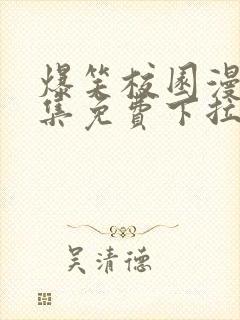 爆笑校园漫
集免費下拉
吴清德